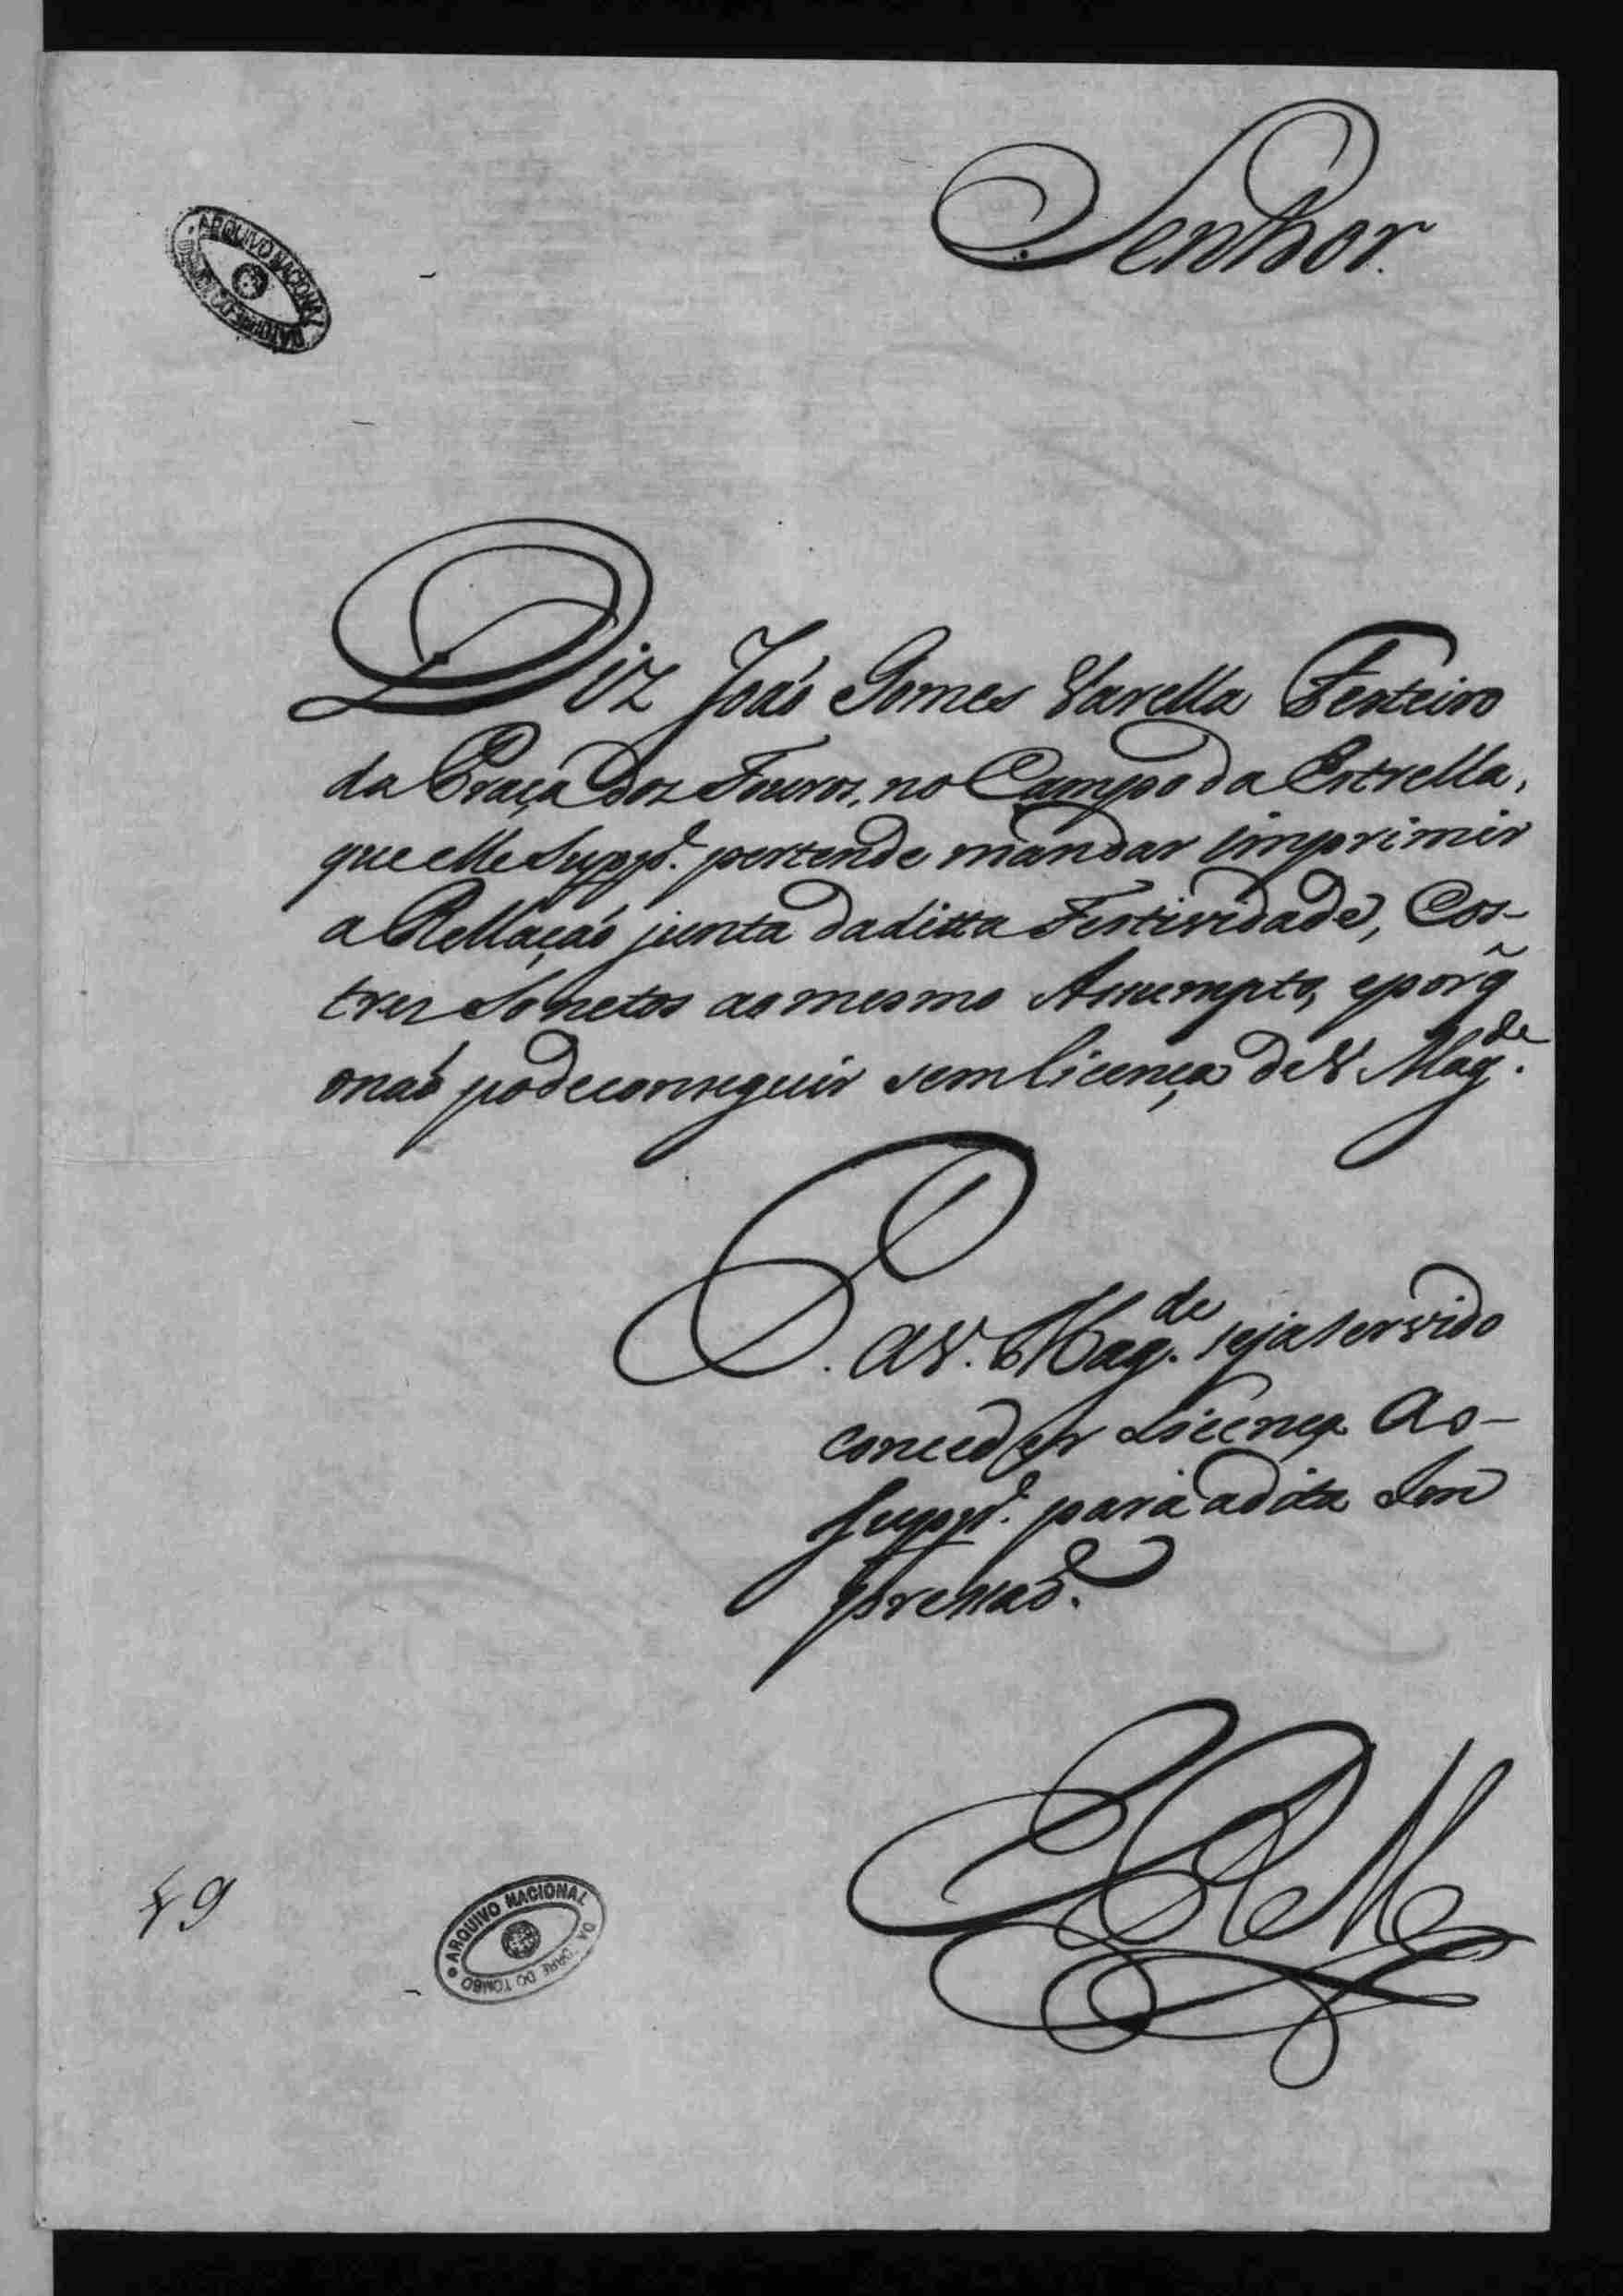 Senhor.
ARQUIVO NACIONAL
Diz João Gomes Varella Festeiro
da Praça dos Touros, no Campo da Estrella,
que elle Supp.e pertende mandar imprimir
a Rellação junta da ditta Festividade, e os
tres Sonetos ao mesmo Assumpto, e porq̃
o não pode conseguir sem licença de V Mag.de
P. a V. Mag.de seja servido
conceder Licença ao
Supp.e para a dita Im
pressão.
E R M
49
ARQUIVO NACIONAL DA TORRE DO TOMBO